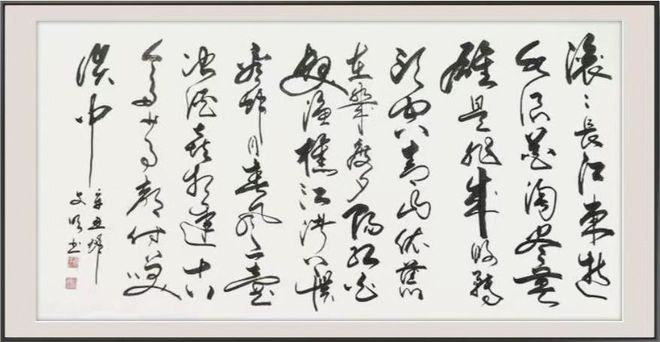 滚〻長江東逝
水浪花淘尽英
雄是非成败转
头空青山依旧
在几度夕陽红白
发渔樵江渚上惯
看秋月春风一壶
浊酒喜相逢古
今多少事都付笑
谈中
辛丑
书